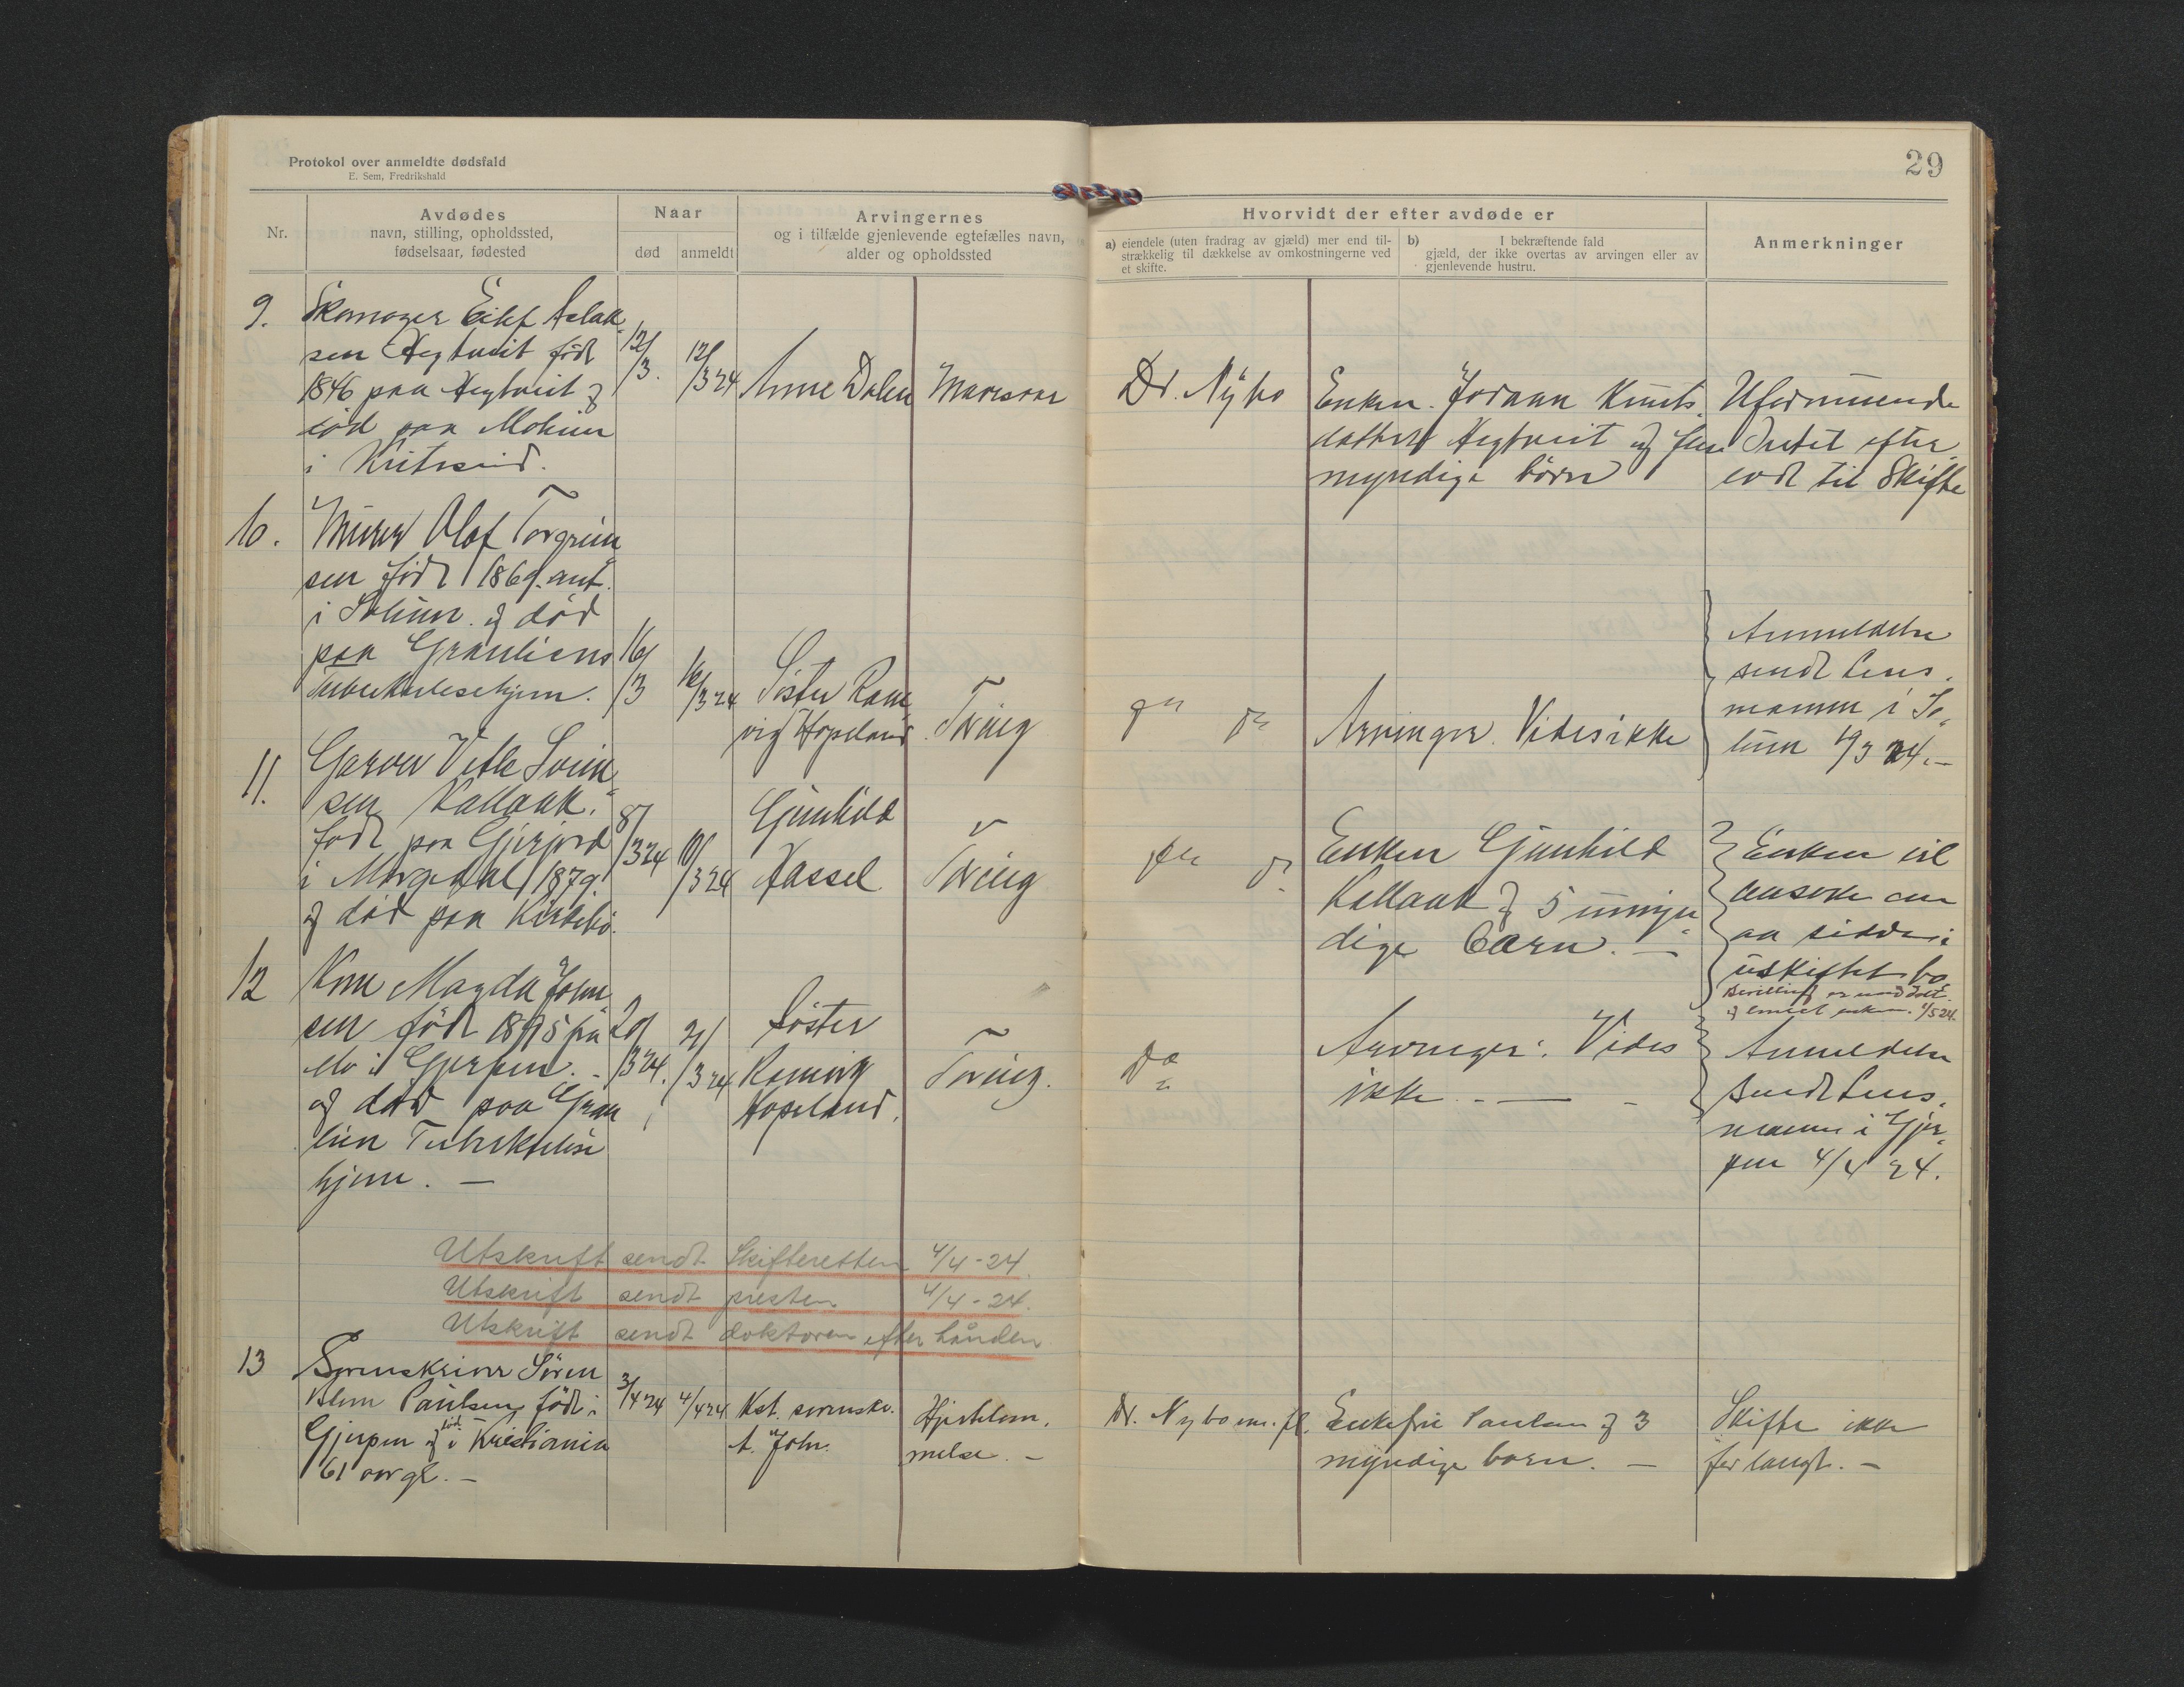 Protokol over anmeldte dødsfald
E. Sem, Fredrikshald
29
Nr.
Avdødes
navn, stilling, opholdssted,
fødselsaar, fødested
Naar
død
anmeldt
Arvingernes
og i tilfælde gjenlevende egtefælles navn,
alder og opholdssted
Hvorvidt der efter avdøde er
a) eiendele (uten fradrag av gjæld) mer end til-
strækkelig til dækkelse av omkostningerne ved
et skifte.
b) I bekræftende fald
gjæld, der ikke overtas av arvingen eller av
gjenlevende hustru.
Anmerkninger
9.
Skomager Eilef Aslak-
sen Hegtveit født
1846 paa Hegtveit og
død paa Moheim
i Kviteseid.
12/3.
12/3 24
Anne Dalen
Dr. Nybø
Enken Joraan Knuts-
datter Hegtveit og flere
myndige børn
Uformuende
Intet efter-
ladt til Skifte
10.
Murer Olaf Torgrim
sen født 1869. ant.
i Solum og død
paa Granliens
Tuberkulosehjem.
16/3
16/3 24
Søster Ran
vig Hopeland
Tveitg
Arvinger Vides ikke
Anmeldelse
sendt Lens-
mannen i So-
lum 19/3 24.-
11.
Garver Vetle Svein
sen Kallaak.
født paa Gjerjord
i Morgedal 1879.
og død paa Kirkebø.
8/3 24
10/3 24
Gunhild
Hassel
Enken Gunhild
Kallaak og 5 umyn-
dige Børn. -
Enken vil
ansøke om
aa sidde i
uskiftet bo
12
Magda John
sen født 1895 på
Mo i Gjerpen. -
og død paa Gran
lien Tuberkulose
hjem. -
20/3 24.
21/3 24
Søster
Ranvig
Hopeland.
Do
Arvinger: Vides
ikke. -
Anmeldelse
sendt Lens-
mannen i Gjer-
pen 4/4 24.
Utskrift sendt Skifteretten 4/4-24.
Utskrift sendt presten 4/4-24.
Utskrift sendt doktoren efter hånden
13
Sorenskriver Søren
Blom Paulsen født i
Gjerpen og død i Kristiania
61 aar gl. -
3/4 24
4/4 24
Kst. sorenskr.
A. John.
Hjertelam-
melse. -
Dr. Nybø m. fl.
Enkefru Paulsen og 3
myndige børn. -
Skifte ikke
forlangt. -